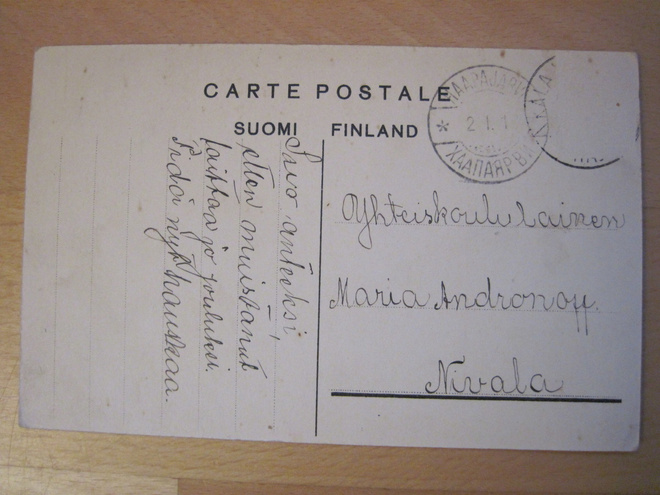 CARTE POSTALE
SUOMI FINLAND
HAAPAJÄRVI
* 2.1.1
ХААПАЯРВИ
Suo anteeksi
etten muistanut
laittaa jo jouluksi.
Pidä nyt hauskaa.
Yhteiskoululainen
Maria Andronoff.
Nivala